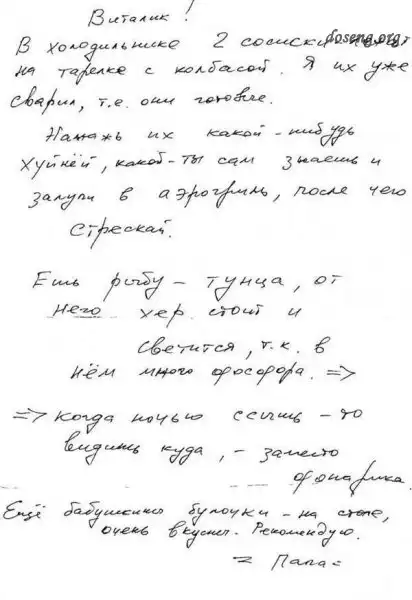 Виталик!
doseng.org
В холодильнике 2 сосиски
на тарелке с колбасой. Я их уже
сварил, т.е. они готовые.
Намажь их какой-нибудь
хуйнёй, какой-ты сам знаешь и
залупи в аэрогриль, после чего
стрескай.
Ешь рыбу - тунца, от
него хер стоит и
светится, т.к. в
нём много фосфора. =>
=> Когда ночью ссышь - то
видишь куда, - заместо
фонарика.
Ещё бабушкины булочки - на столе,
очень вкусны. Рекомендую.
= Папа =